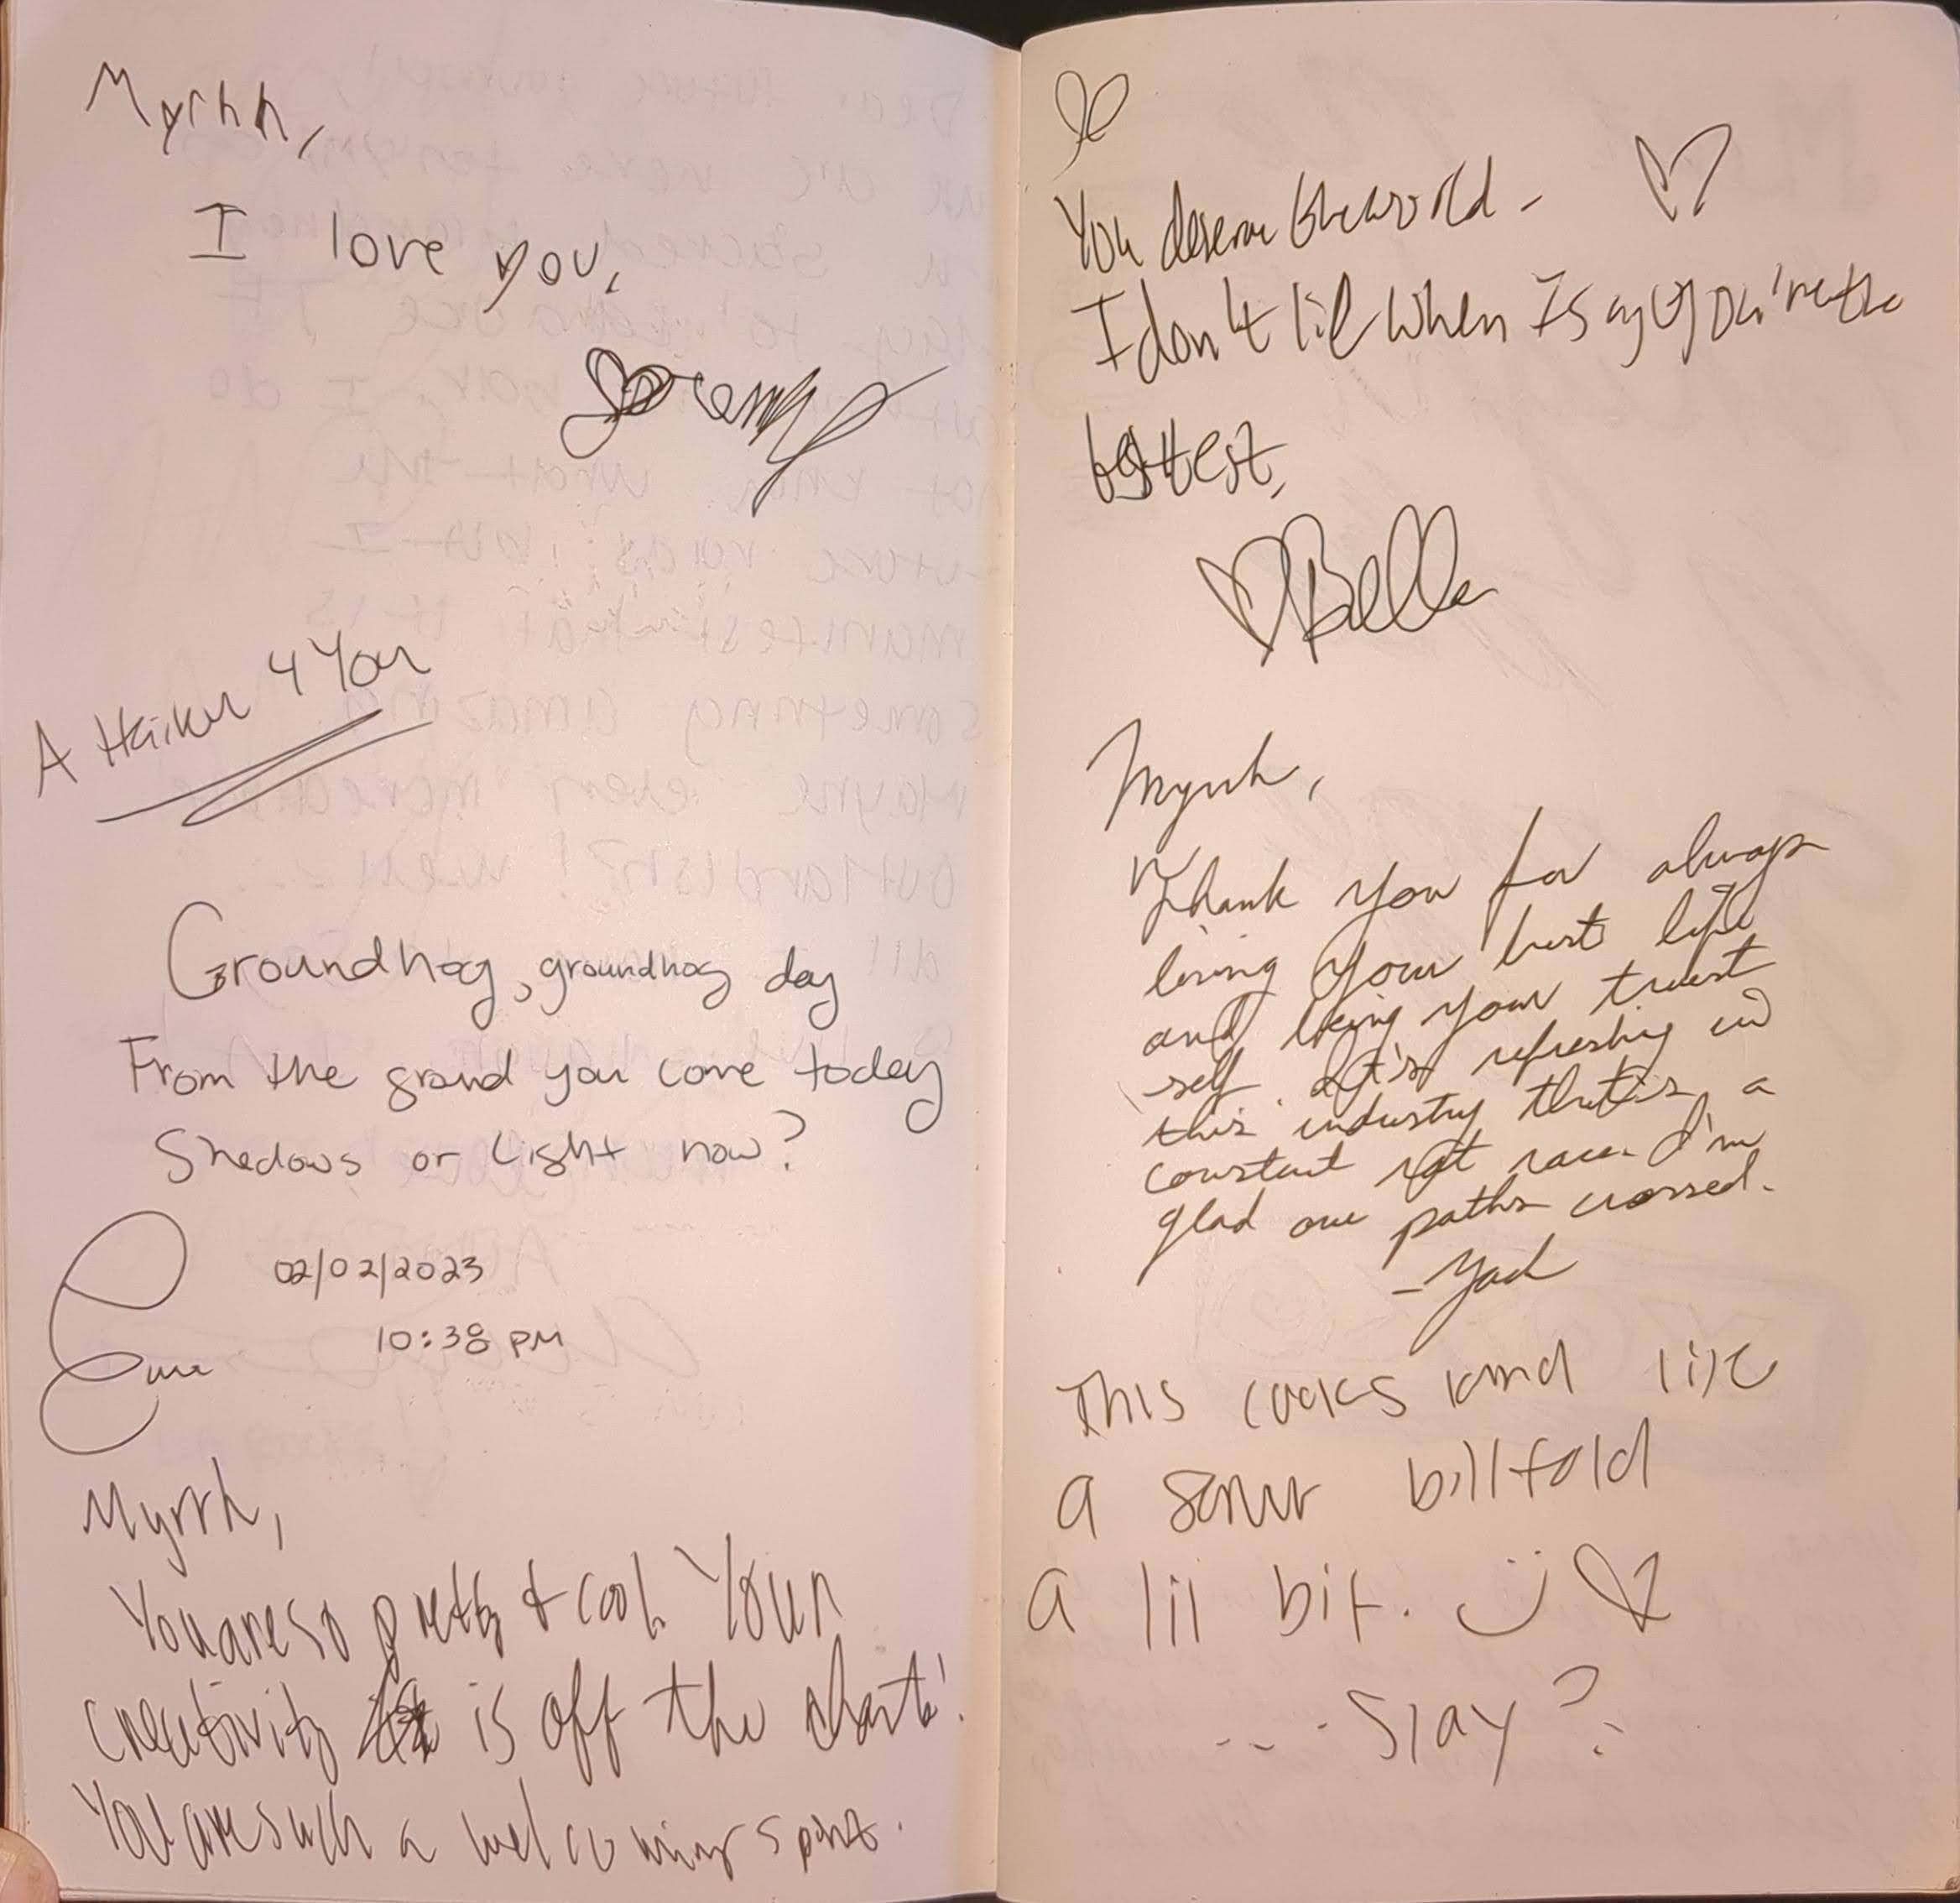 Myrhh,
I love you,
A Haiku 4 You
Groundhog, groundhog day
From the grond you come today
Shadows or Light now?
02/02/2023
10:38 PM
Myrrh,
You are so pretty & cool. Your
creativity is off the charts!
You are such a welcoming spirit.
You deserve the world -
I don't lie when I say you're the
bestest,
Bella
Myrrh,
Thank you for always
living your best life
and being your truest
self. It's refreshing in
this industry that is a
constant rat race. I'm
glad our paths crossed.
This looks kind like
a billfold
a lil bit. :)
.... Slay?